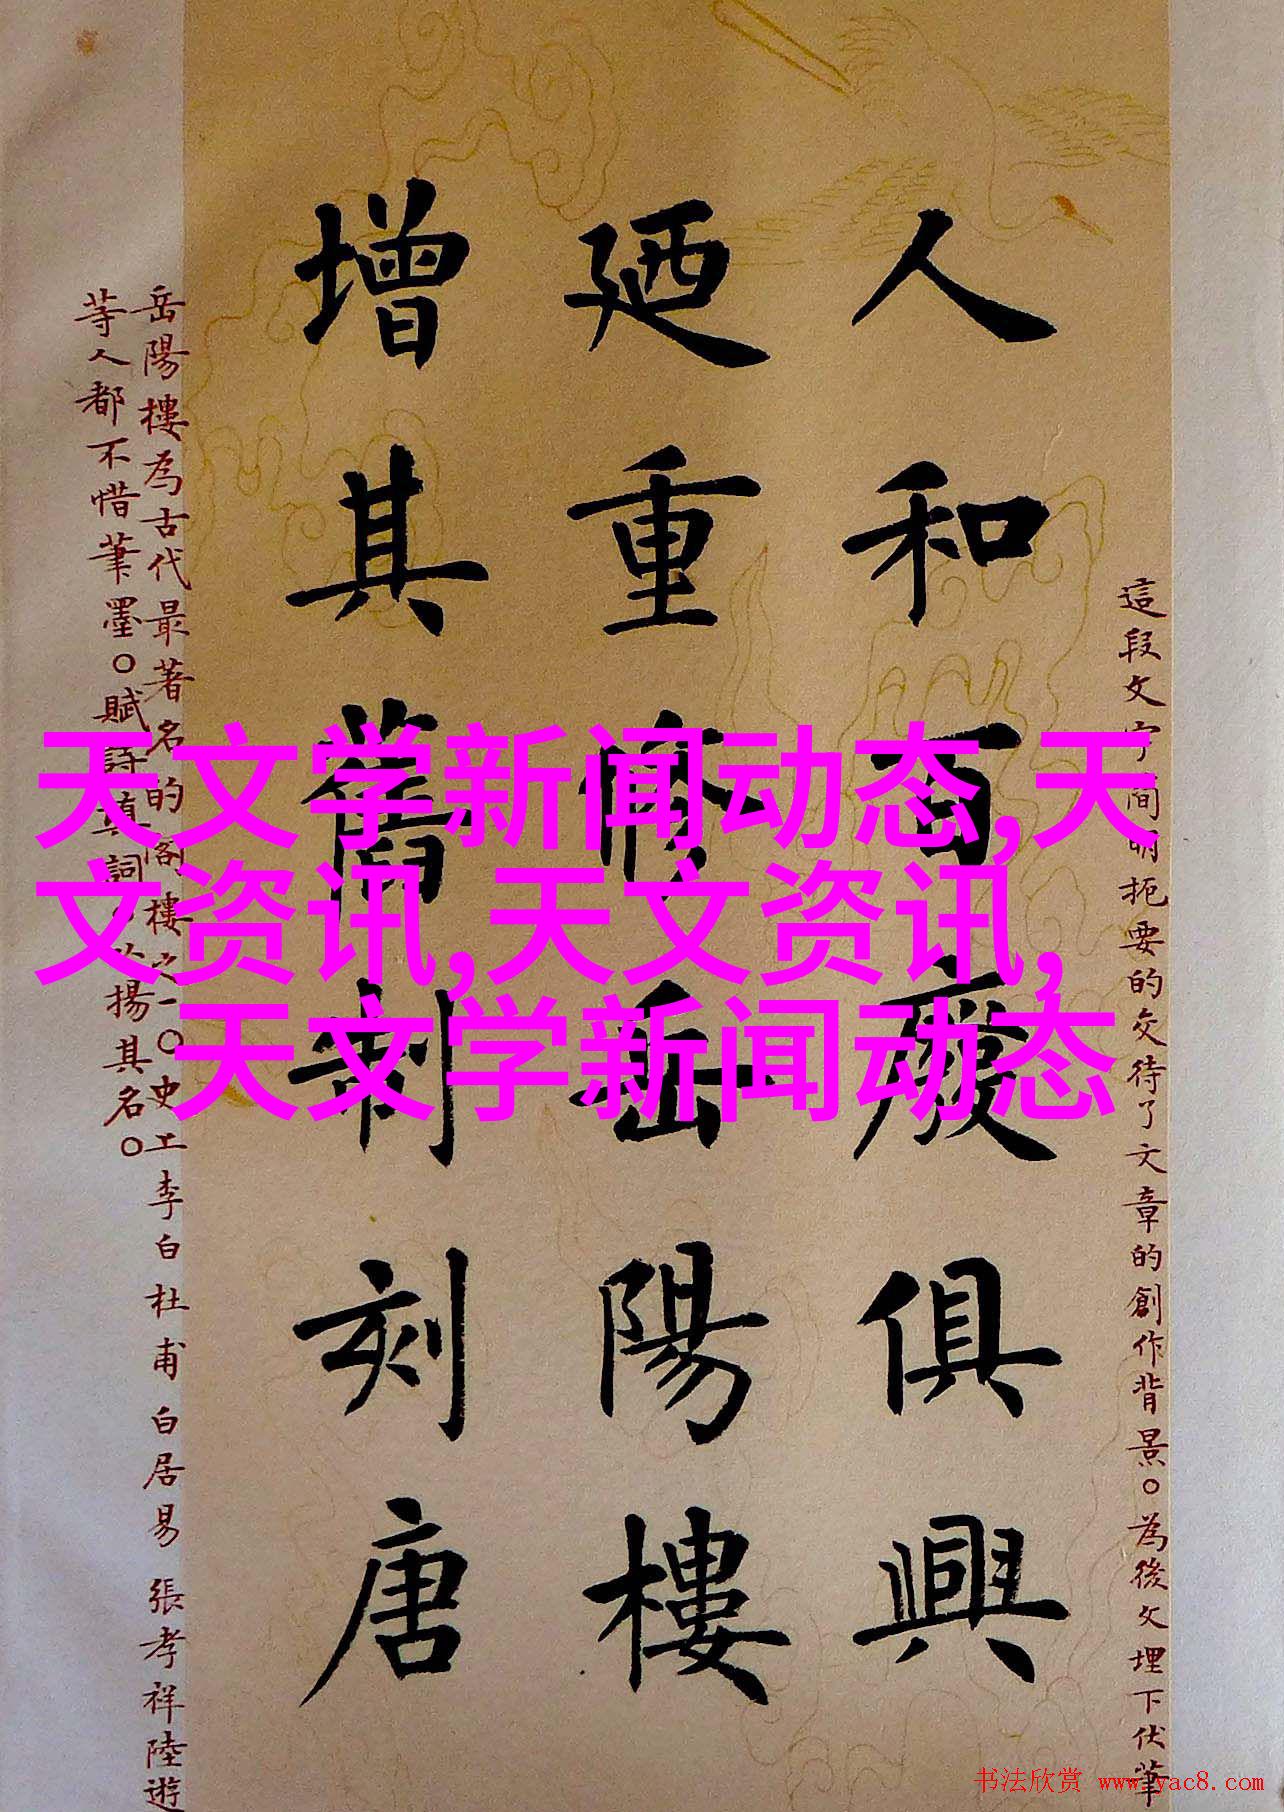 這段文字簡明扼要的交待了文章的創作背景。為後文埋下伏筆
人和百廢俱興
廼重修岳陽樓
增其舊制刻唐
岳陽樓為古代最著名的閣樓之一。史上李白杜甫 白居易 張孝祥陸遊
等人都不惜筆墨。賦詩填詞，以揚其名。
天文学新闻动态,天
文资讯,天文资讯,
天文学新闻动态
书法欣赏 www.yac8.com